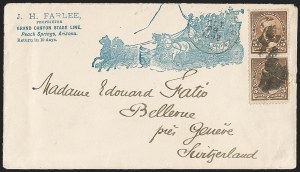 J. H. FARLEE,
PROPRIETOR
GRAND CANYON STAGE LINE,
Peach Springs, Arizona.
Return in 10 days.
Madame Edouard Fatio
Bellevue
près Genève
Switzerland